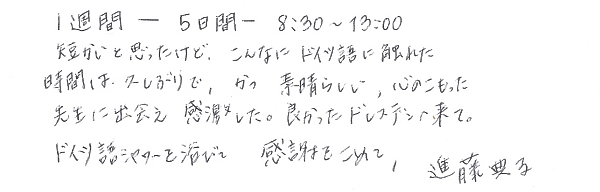 1週間 ー 5日間ー 8:30～13:00
短かいと思ったけど、こんなにドイツ語に触れた
時間は、久しぶりで、かつ 素晴らしい、心のこもった
先生に出会え 感激した。良かったドレスデンへ来て。
ドイツ語シャワーを浴びて 感謝をこめて、進藤典子